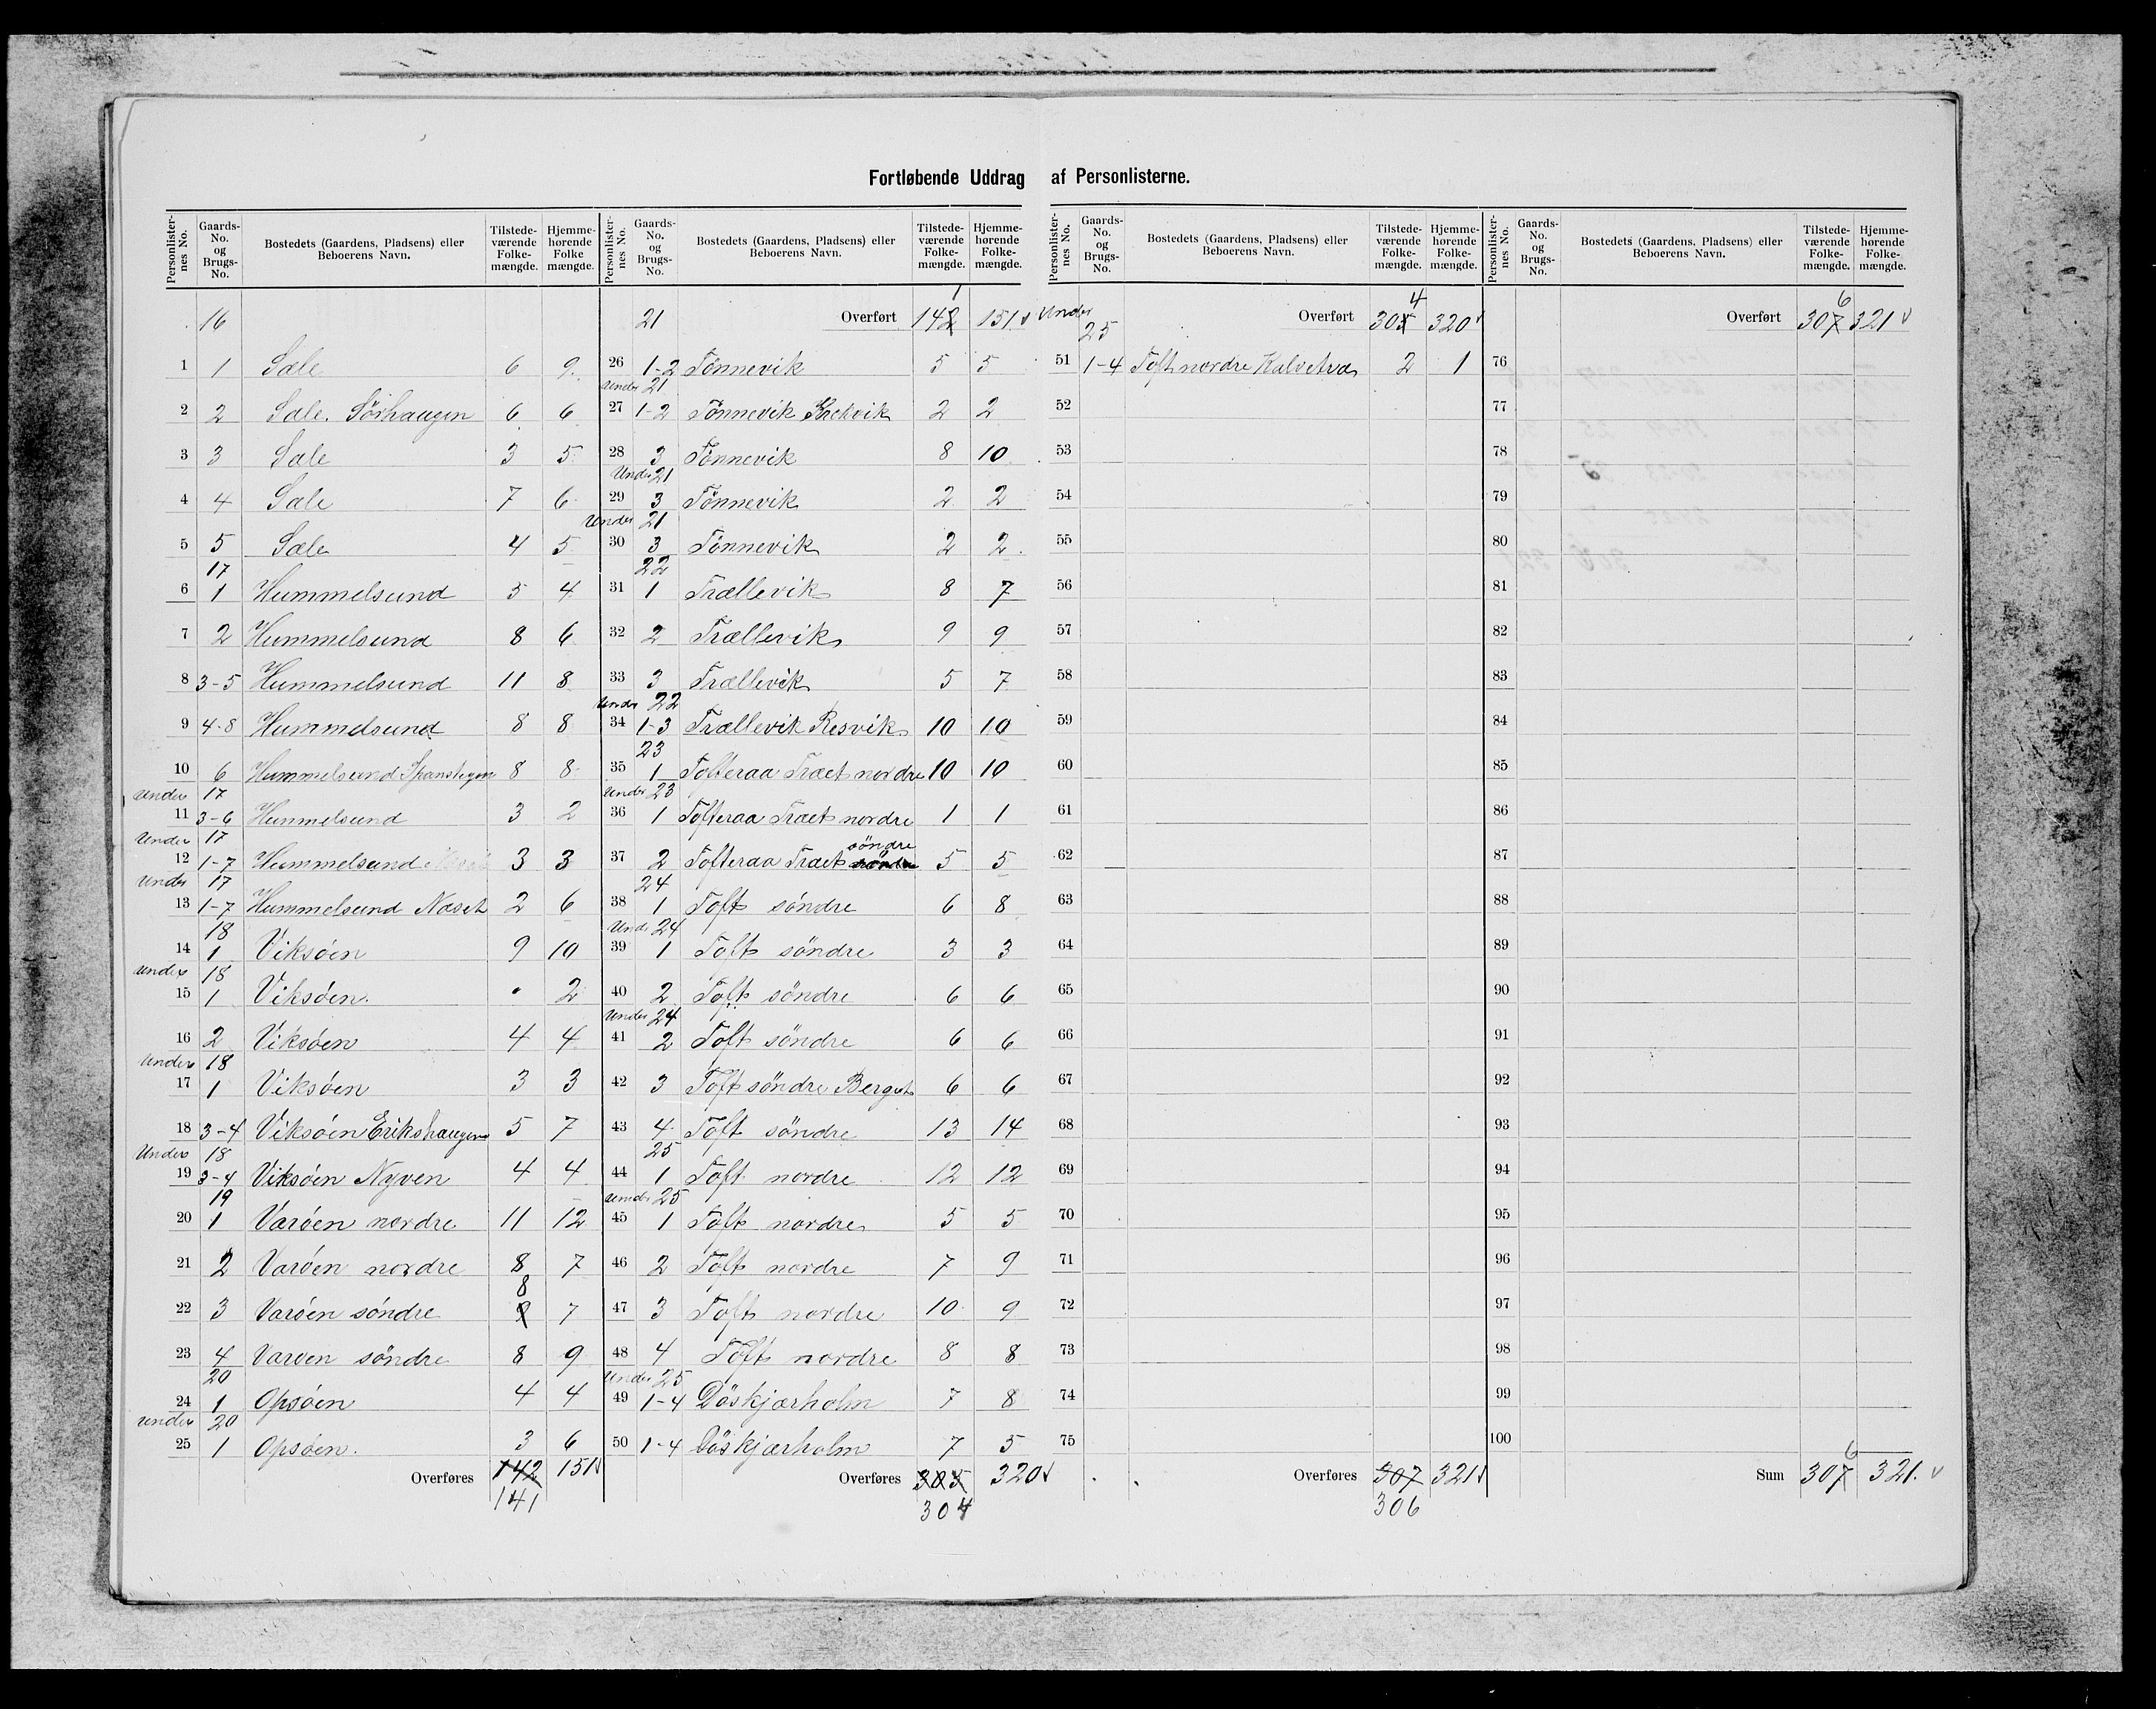 Fortløbende Uddrag af Personlisterne.
Personlister-nes No. Gaards-No. og Brugs-No. Bostedets (Gaardens, Pladsens) eller Beboerens Navn. Tilstede-værende Folke-mængde. Hjemme-hørende Folke mængde.
16
1 1 Sæle 6 9
2 2 Sæle. Sørhaugen 6 6
3 3 Sæle 3 5
4 4 Sæle 7 6
5 5 Sæle 4 5
17
6 1 Hummelsund 5 4
7 2 Hummelsund 8 6
8 3-5 Hummelsund 11 8
9 4-8 Hummelsund 8 8
10 6 Hummelsund 8 8
Under 17
11 3-6 Hummelsund 3 2
Under 17
12 1-7 Hummelsund 3 3
Under 17
13 1-7 Hummelsund Næset 2 6
18
14 1 Viksøen 9 10
Under 18
15 1 Viksøen. • 2
16 2 Viksøen 4 4
Under 18
17 1 Viksøen 3 3
18 3-4 Viksøen Erikshaugen 5 7
Under 18
19 3-4 Viksøen Nyven 4 4
19
20 1 Varøen nordre 11 12
21 2 Varøen nordre 8 7
8
22 3 Varøen søndre 9 7
23 4 Varøen søndre 8 9
20
24 1 Opsøen 4 4
Under 20
25 1 Opsøen. 3 6
Overføres 142 151
141
Personlister-nes No. Gaards-No. og Brugs-No. Bostedets (Gaardens, Pladsens) eller Beboerens Navn. Tilstede-værende Folke-mængde. Hjemme-hørende Folke-mængde.
1
21 Overført 142 151
26 1-2 Tønnevik 5 5
Under 21
27 1-2 Tønnevik 2 2
28 3 Tønnevik 8 10
Under 21
29 3 Tønnevik 2 2
Under 21
30 3 Tønnevik 2 2
22
31 1 Trællevik 8 7
32 2 Trællevik 9 9
33 3 Trællevik 5 7
Under 22
34 1-3 Trællevik Resvik 10 10
23
35 1 Tofteraa Træet nordre 10 10
Under 23
36 1 Tofteraa Træet nordre 1 1
søndre
37 2 Tofteraa Træet nordre 5 5
24
38 1 Toft søndre 6 8
Under 24
39 1 Toft søndre 3 3
40 2 Toft søndre 6 6
Under 24
41 2 Toft søndre 6 6
42 3 Toft søndre Berget 6 6
43 4 Toft søndre 13 14
25
44 1 Toft nordre 12 12
Under 25
45 1 Toft nordre 5 5
46 2 Toft nordre 7 9
47 3 Toft nordre 10 9
48 4 Toft nordre 8 8
Under 25
49 1-4 Døskjærholm 7 8
50 1-4 Døskjærholm 7 5
Overføres 305 320
304
Personlister-nes No. Gaards-No. og Brugs-No. Bostedets (Gaardens, Pladsens) eller Beboerens Navn. Tilstede-værende Folke-mængde. Hjemme-hørende Folke-mængde.
4
Under 25 Overført 305 320
51 1-4 Toft nordre 2 1
52
53
54
55
56
57
58
59
60
61
62
63
64
65
66
67
68
69
70
71
72
73
74
75
Overføres 307 321
306
Personlister-nes No. Gaards-No. og Brugs-No. Bostedets (Gaardens, Pladsens) eller Beboerens Navn. Tilstede-værende Folke-mængde. Hjemme-hørende Folke-mængde.
6
Overført 307 321
76
77
78
79
80
81
82
83
84
85
86
87
88
89
90
91
92
93
94
95
96
97
98
99
100
6
Sum 307 321.